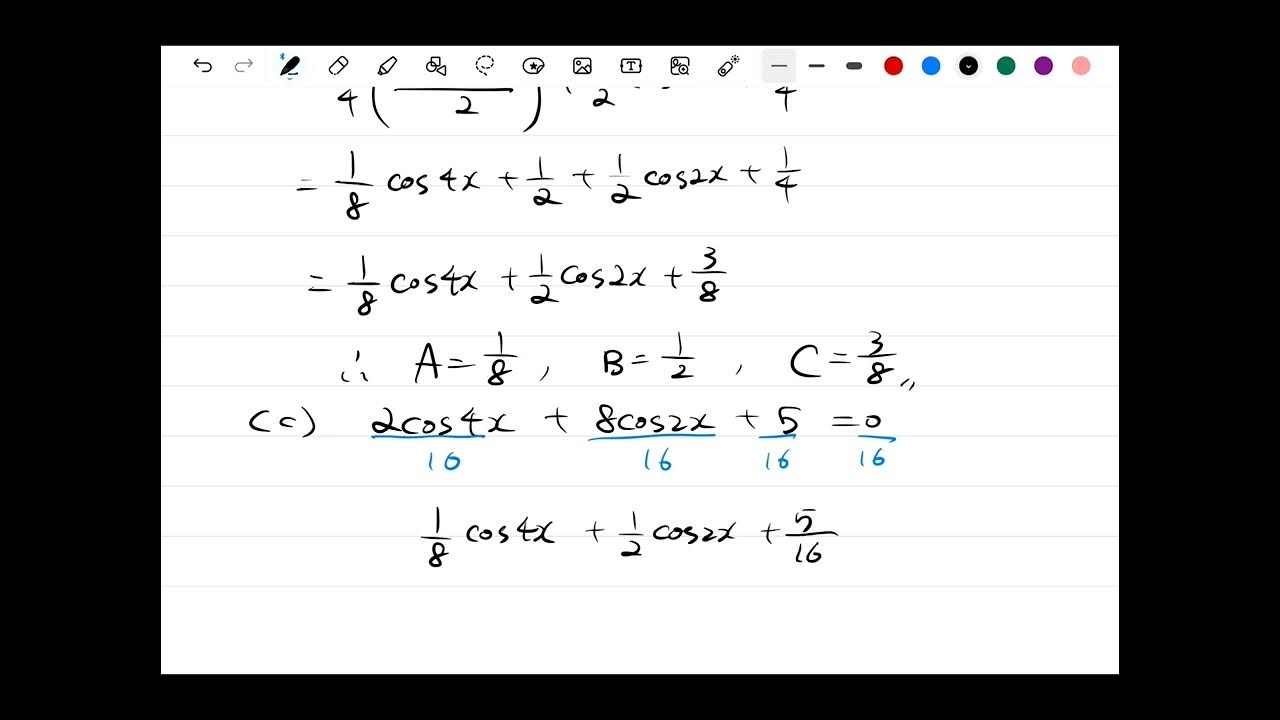 4 ( 2 ) 2 4
= 1/8 cos4x + 1/2 + 1/2 cos2x + 1/4
= 1/8 cos4x + 1/2 cos2x + 3/8
∴ A = 1/8 , B = 1/2 , C = 3/8 ,,
(c) 2cos4x + 8cos2x + 5 = 0
16 16 16 16
1/8 cos4x + 1/2 cos2x + 5/16